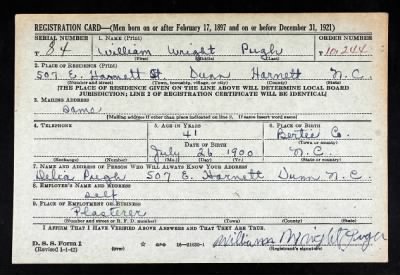 REGISTRATION CARD—(Men born on or after February 17, 1897 and on or before December 31, 1921)
SERIAL NUMBER 1. NAME (Print) ORDER NUMBER
T 84 William Wright Pugh 10244
(First) (Middle) (Last)
2. PLACE OF RESIDENCE (Print)
507 E. Harnett St. Dunn Harnett N.C.
(Number and street) (Town, township, village, or city) (County) (State)
[THE PLACE OF RESIDENCE GIVEN ON THE LINE ABOVE WILL DETERMINE LOCAL BOARD
JURISDICTION; LINE 2 OF REGISTRATION CERTIFICATE WILL BE IDENTICAL]
3. MAILING ADDRESS
Same
[Mailing address if other than place indicated on line 2. If same insert word same]
4. TELEPHONE 5. AGE IN YEARS 6. PLACE OF BIRTH
41 Bertie Co.
DATE OF BIRTH (Town or county)
July 26 1900 N.C.
(Exchange) (Number) (Mo.) (Day) (Yr.) (State or country)
7. NAME AND ADDRESS OF PERSON WHO WILL ALWAYS KNOW YOUR ADDRESS
Delia Pugh 507 E. Harnett Dunn N.C.
8. EMPLOYER'S NAME AND ADDRESS
Self
9. PLACE OF EMPLOYMENT OR BUSINESS
Plasterer
(Number and street or R. F. D. number) (Town) (County) (State)
I AFFIRM THAT I HAVE VERIFIED ABOVE ANSWERS AND THAT THEY ARE TRUE.
D. S. S. Form 1
(Revised 1-1-42) (over) GPO 16—21630-1 William Wright Pugh
(Registrant's signature)